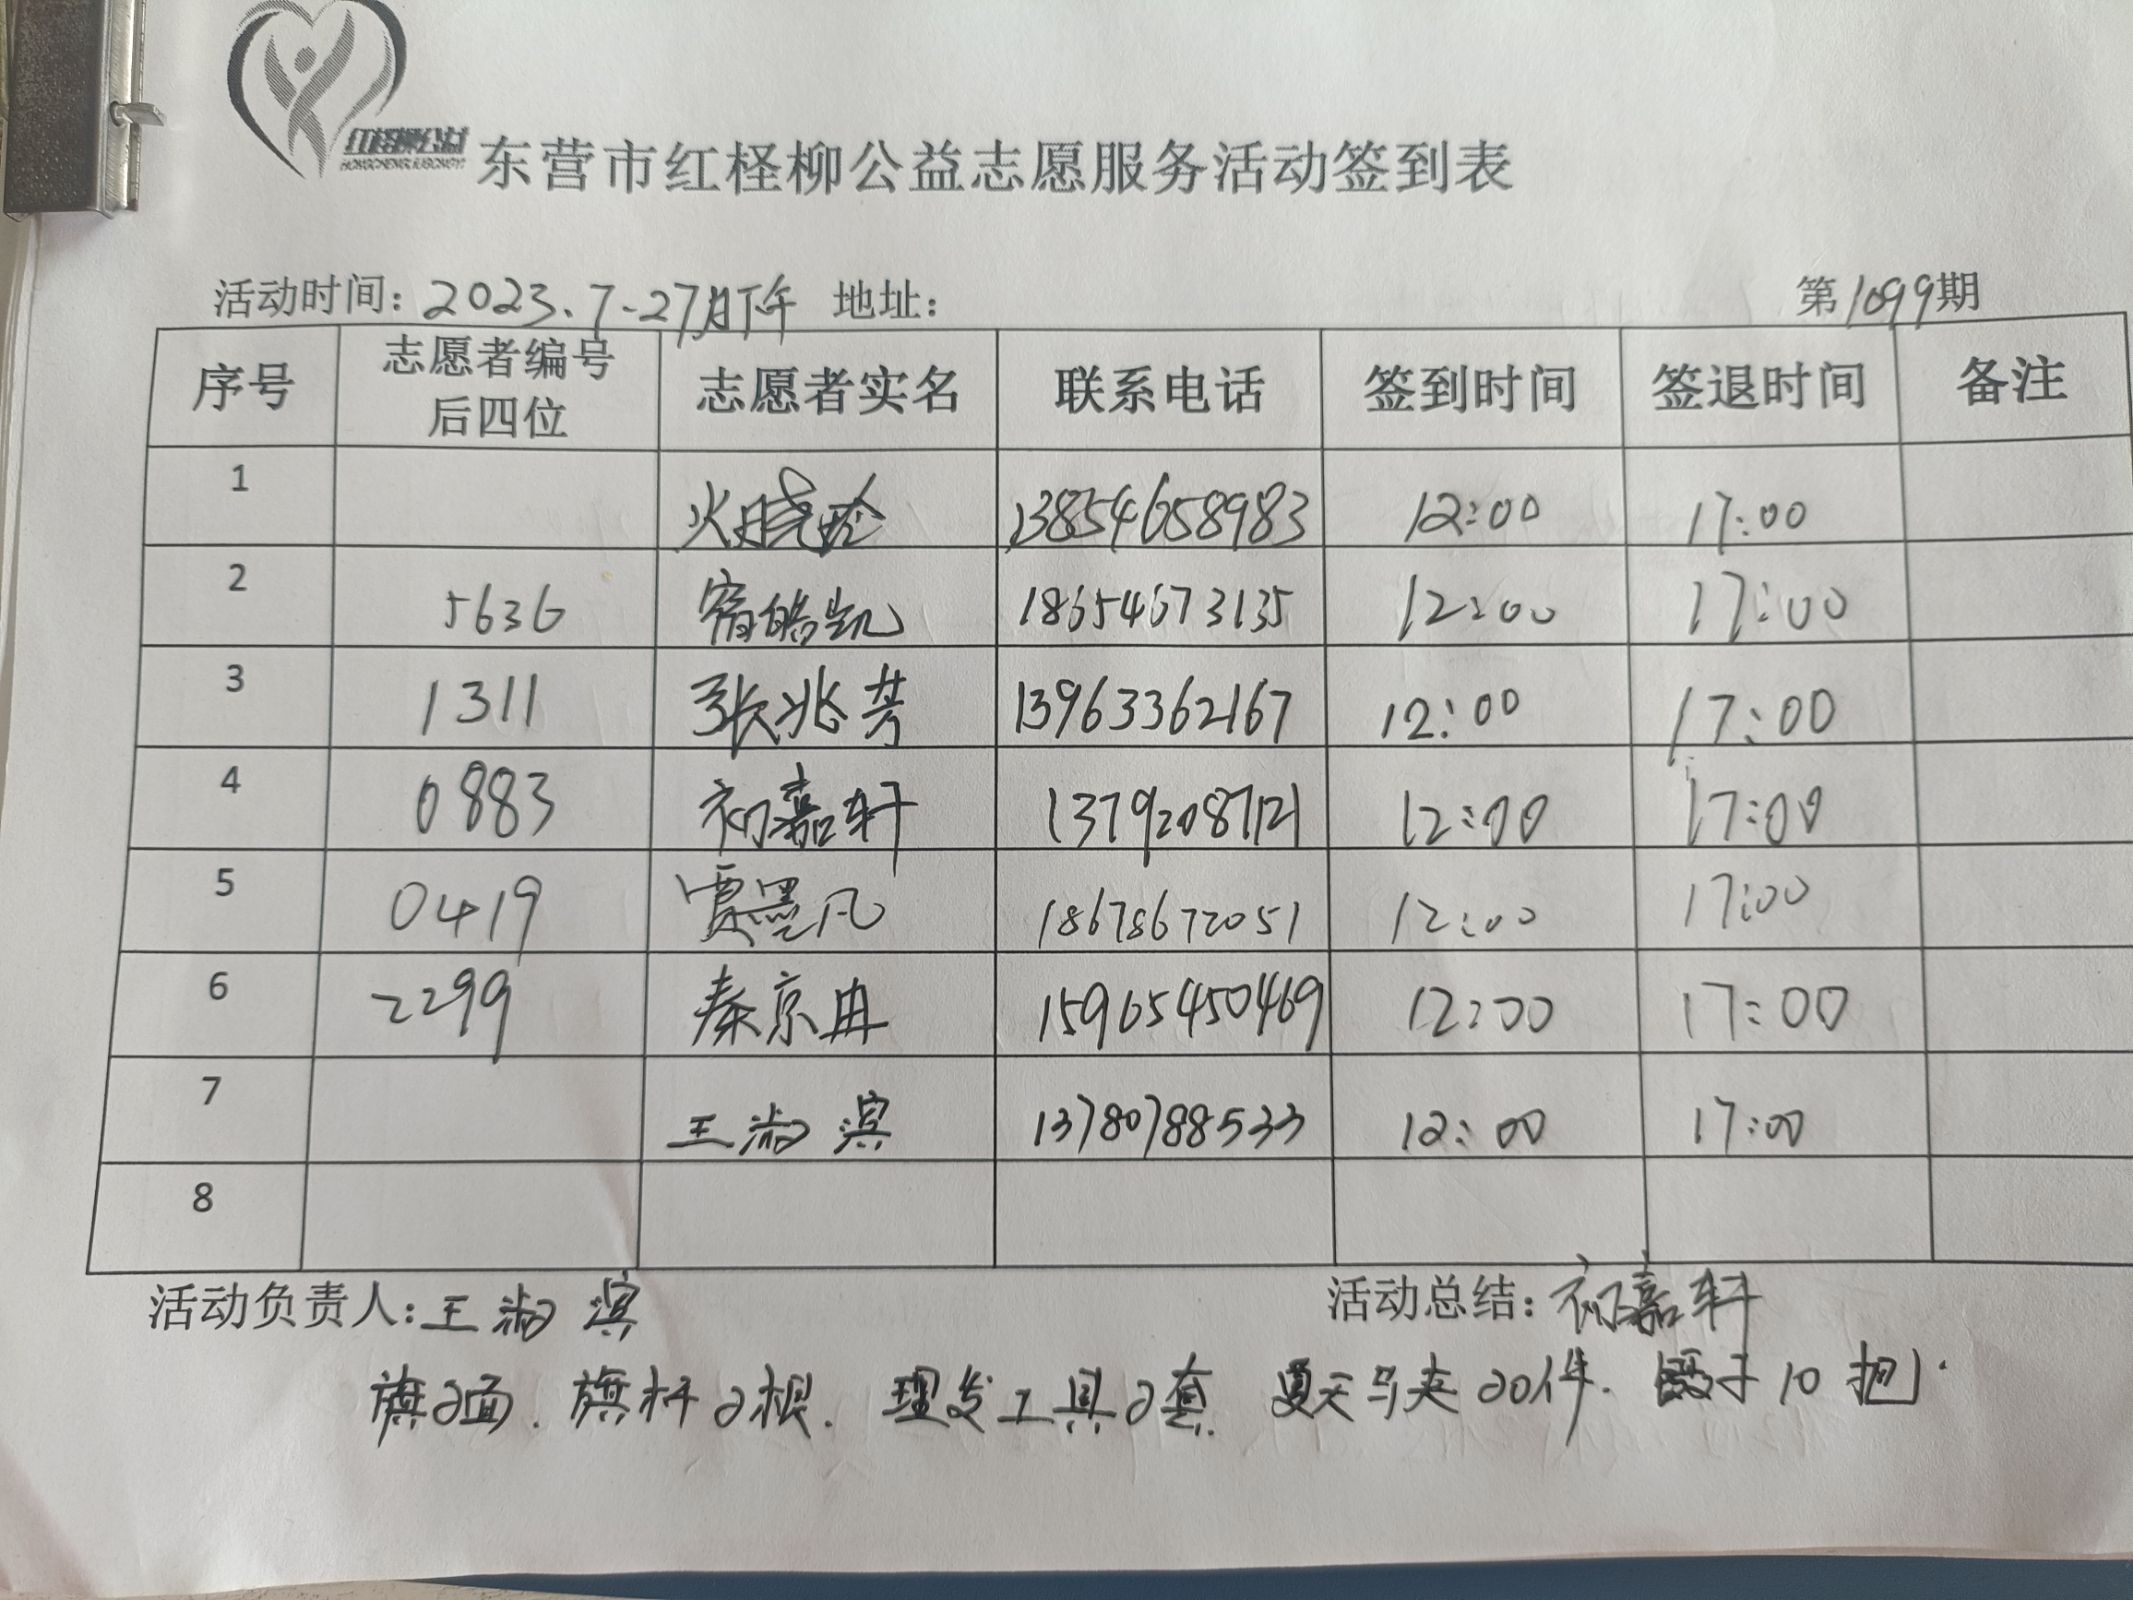 红柽柳公益
HONGCHENGLIUGONGYI
东营市红柽柳公益志愿服务活动签到表
活动时间：2023.7-27日下午 地址： 第1099期
序号 志愿者编号后四位 志愿者实名 联系电话 签到时间 签退时间 备注
1 13854658983 12:00 17:00
2 5636 宿皓凯 18654673135 12:00 17:00
3 1311 张兆芳 13963362167 12:00 17:00
4 0883 初嘉轩 13792087121 12:00 17:00
5 0419 贾墨凡 18678672051 12:00 17:00
6 2299 秦京冉 15965450469 12:00 17:00
7 王淑滨 13780788533 12:00 17:00
8
活动负责人：王淑滨 活动总结：初嘉轩
旗2面.旗杆2根.理发工具2套.夏天马夹20件.子10把.